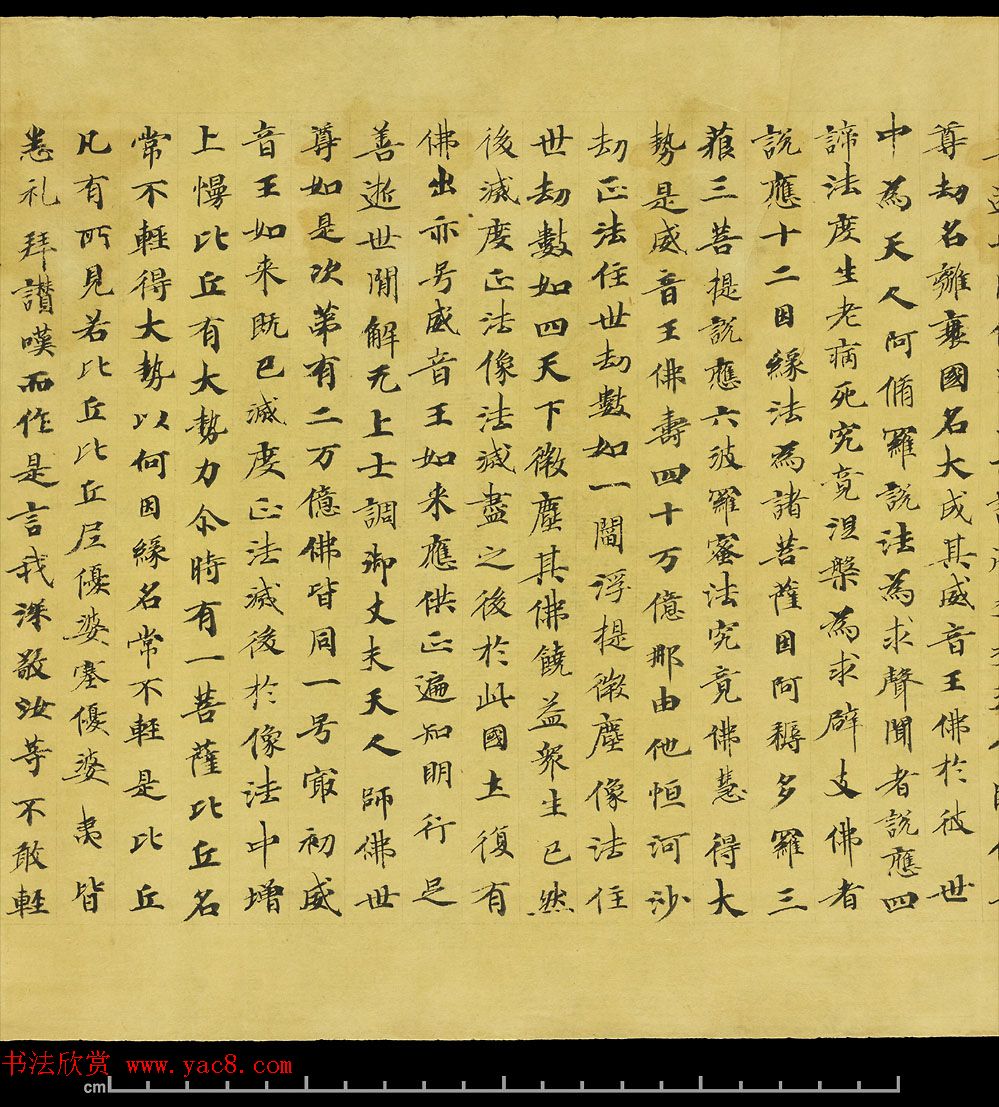 尊劫名離衰國名大成其威音王佛於彼世
中為天人阿脩羅說法為求聲聞者說應四
諦法度生老病死究竟涅槃為求辟支佛者
說應十二因緣法為諸菩薩因阿耨多羅三
藐三菩提說應六波羅蜜法究竟佛慧得大
勢是威音王佛壽四十万億那由他恒河沙
劫正法住世劫數如一閻浮提微塵像法住
世劫數如四天下微塵其佛饒益眾生已然
後滅度正法像法滅盡之後於此國土復有
佛出亦号威音王如来應供正遍知明行足
善逝世間解无上士調御丈夫天人師佛世
尊如是次第有二万億佛皆同一号冣初威
音王如来既已滅度正法滅後於像法中增
上慢比丘有大勢力尒時有一菩薩比丘名
常不輕得大勢以何因緣名常不輕是比丘
凡有所見若比丘比丘尼優婆塞優婆夷皆
悉礼拜讚嘆而作是言我深敬汝等不敢輕
书法欣赏 www.yac8.com
cm